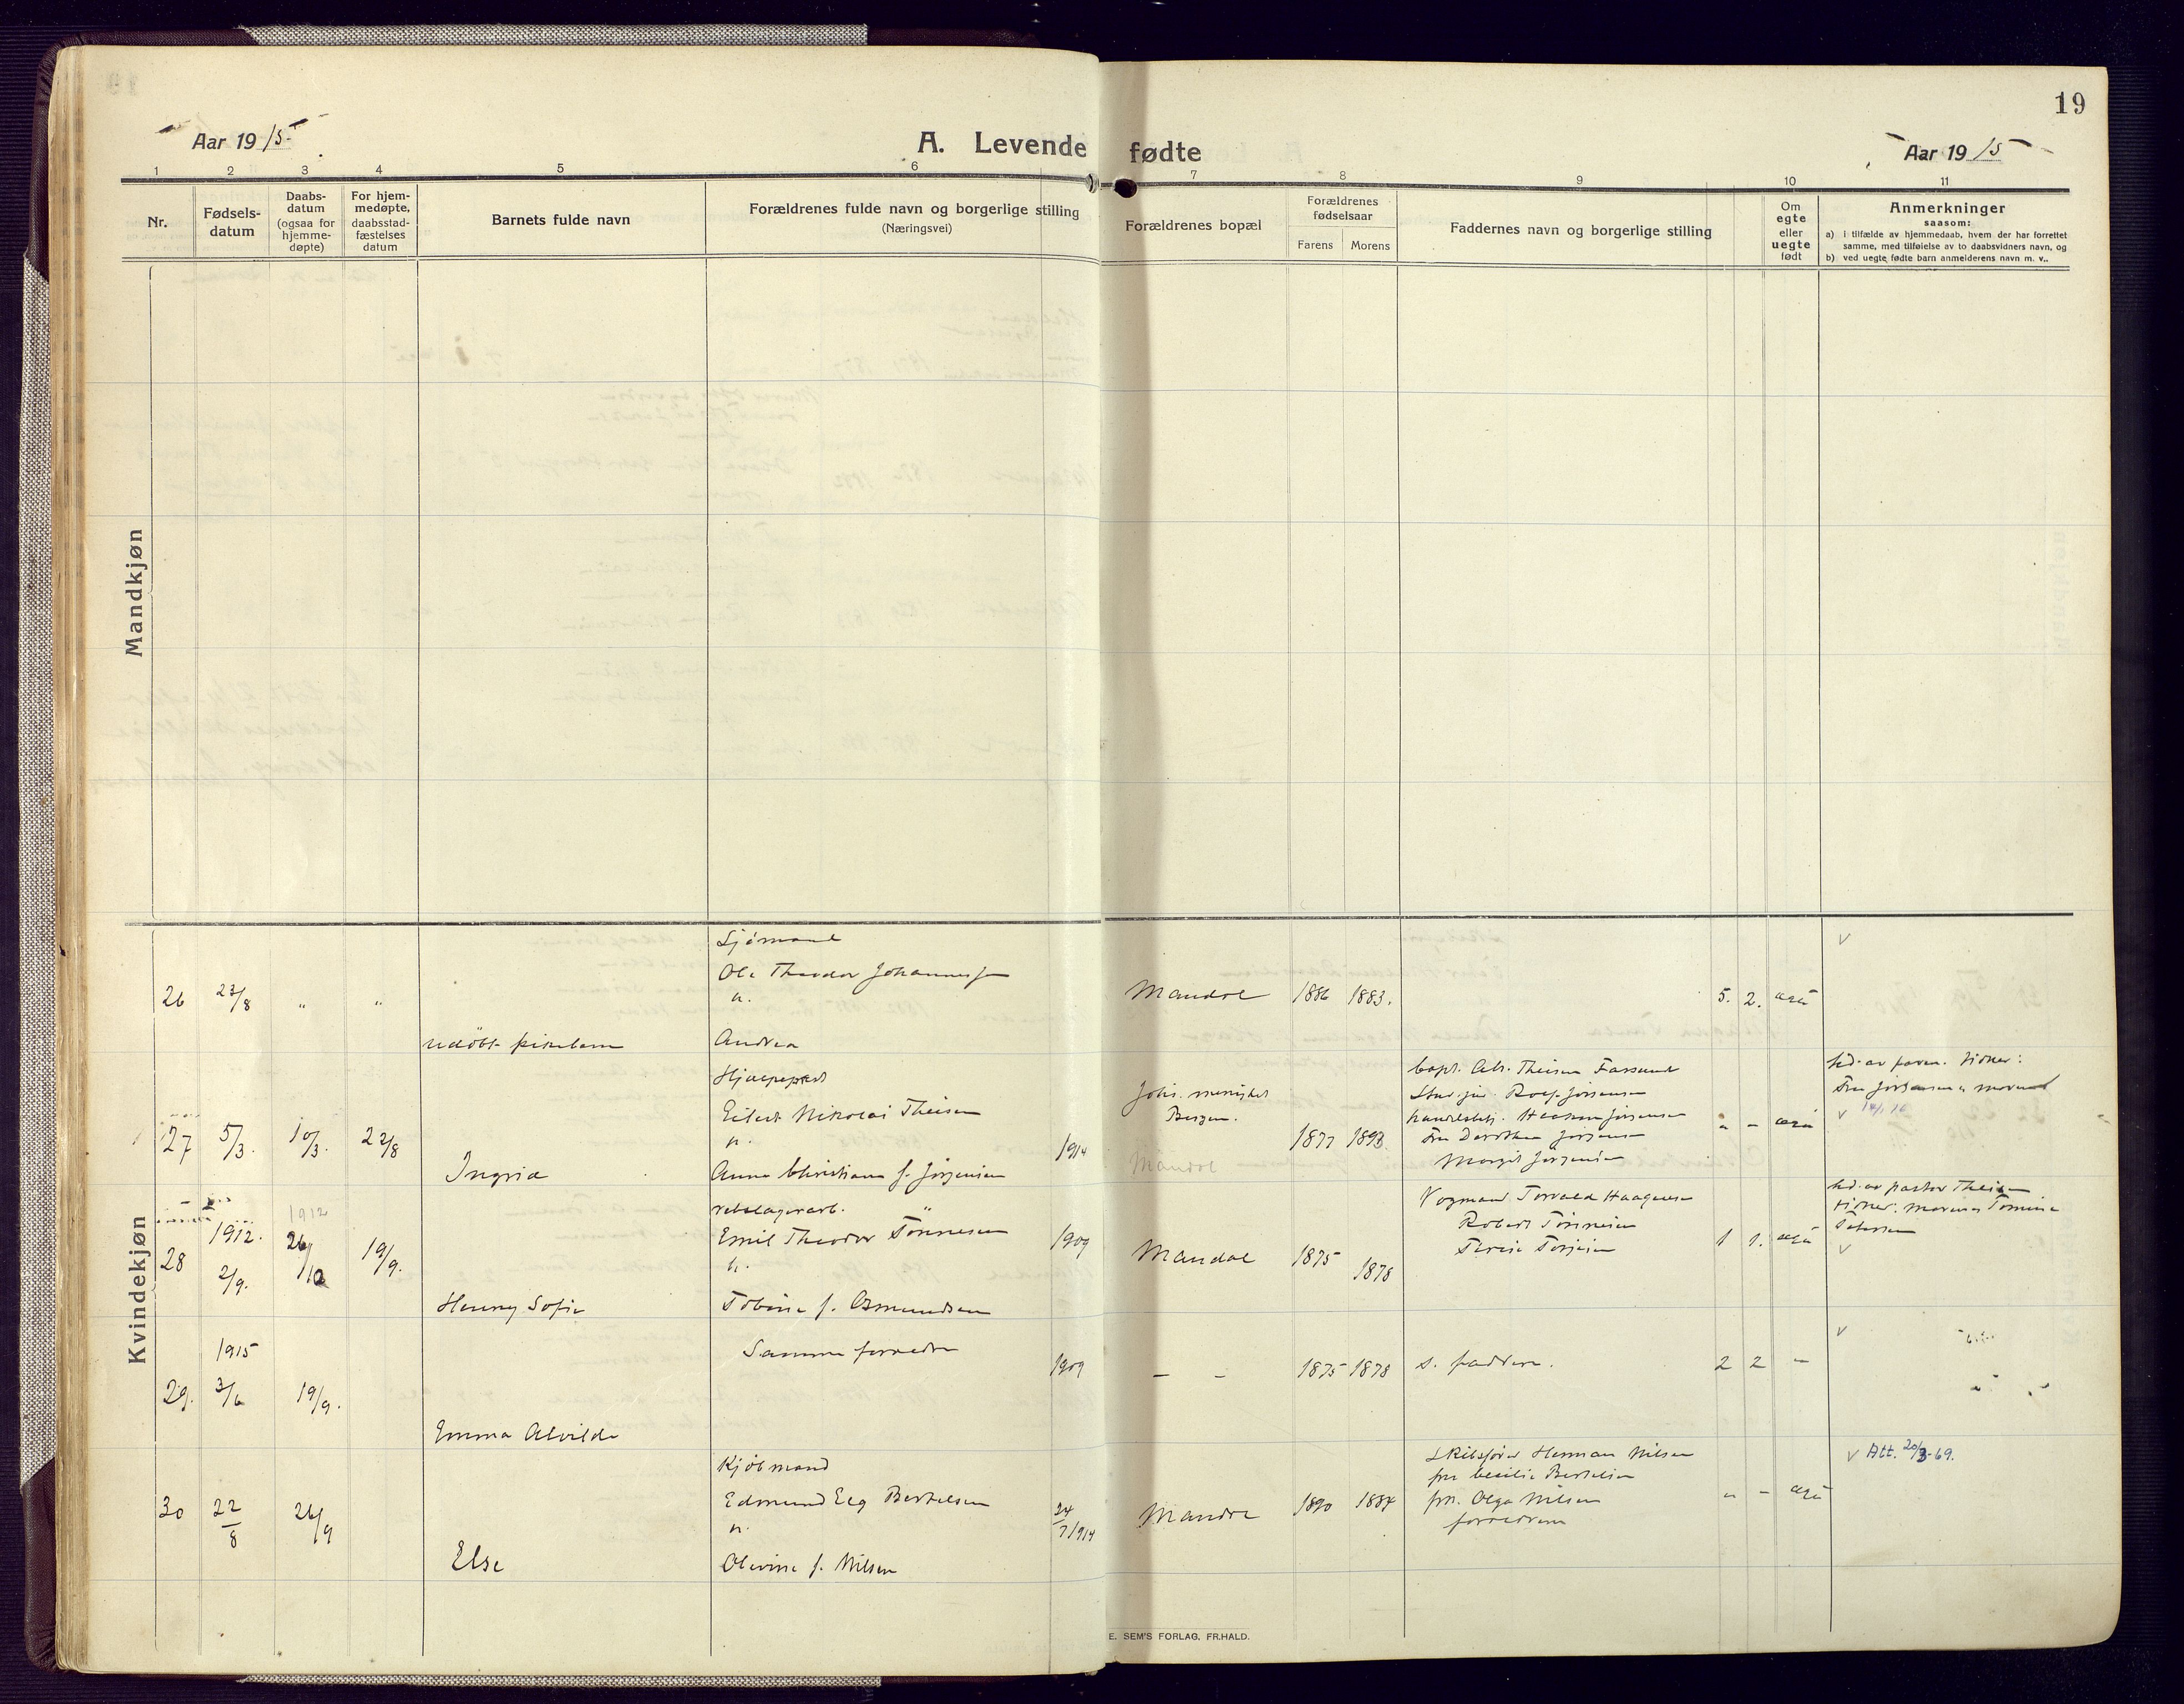 19
Aar 1915
A. Levende fødte
Aar 1915
1 2 3 4 5 6 7 8 9 10 11
Nr.
Fødsels-
datum
Daabs-
datum
(ogsaa for
hjemme-
døpte)
For hjem-
medøpte,
daabsstad-
fæstelses
datum
Barnets fulde navn
Forældrenes fulde navn og borgerlige stilling
(Næringsvei)
Forældrenes bopæl
Forældrenes
fødselsaar
Farens Morens
Faddernes navn og borgerlige stilling
Om
egte
eller
uegte
født
Anmerkninger
saasom:
a) i tilfælde av hjemmedaab, hvem der har forrettet
samme, med tilføielse av to daabsvidners navn, og
b) ved uegte fødte barn anmelderens navn m. v..
Mandkjøn
Kvindekjøn
26 23/8 " "
udöbt pikebarn
Sjömand
Ole Theodor Johannessen
o.
Andrea
Mandal 1886 1883. 5. 2. egte
27 5/3. 10/3. 22/8
Ingrid
Hjælpeprest
Eilert Nikolai Theisen
o.
Anna Christiane f. Jörgensen
1914
Johs. menighet
Bergen.
Mandal
1877 1893
capt. Alb. Theisen Farsund
Stud. jur. Rolf Jörgensen
handelsbetj. Haakon Jörgensen
Fru Dorothea Jörgensen
Margit Jörgensen
" - egte
hd. av faren. Vidner:
Fru Jörgensen o. moren
28 1912. 2/9. 1912 26/10 19/9.
Henny Sofie
rebslagerarb.
Emil Theodor Tönnesen
o.
Tobine f. Osmundsen
1909
Mandal 1875 1878
Torvald Haagensen
Robert Tönnesen
1 1. egte
hd. av pastor Theisen
vidner. moren o. Tomine
29. 1915 3/6 19/9.
Emma Alvilde
Samme forældre
1909
- - 1875 1878
s. faddere.
2 2 -
30 22/8 26/9
Else
Kjöbmand
Edmund Elg Bertelsen
o.
Olevine f. Nilsen
24/7 1914
Mandal 1890 1884
Skibsförer Herman Nilsen
fru Cecilie Bertelsen
frk. Olga Nilsen
forældrene
" - egte
v Att. 20/3-69.
E. SEM'S FORLAG, FR.HALD.